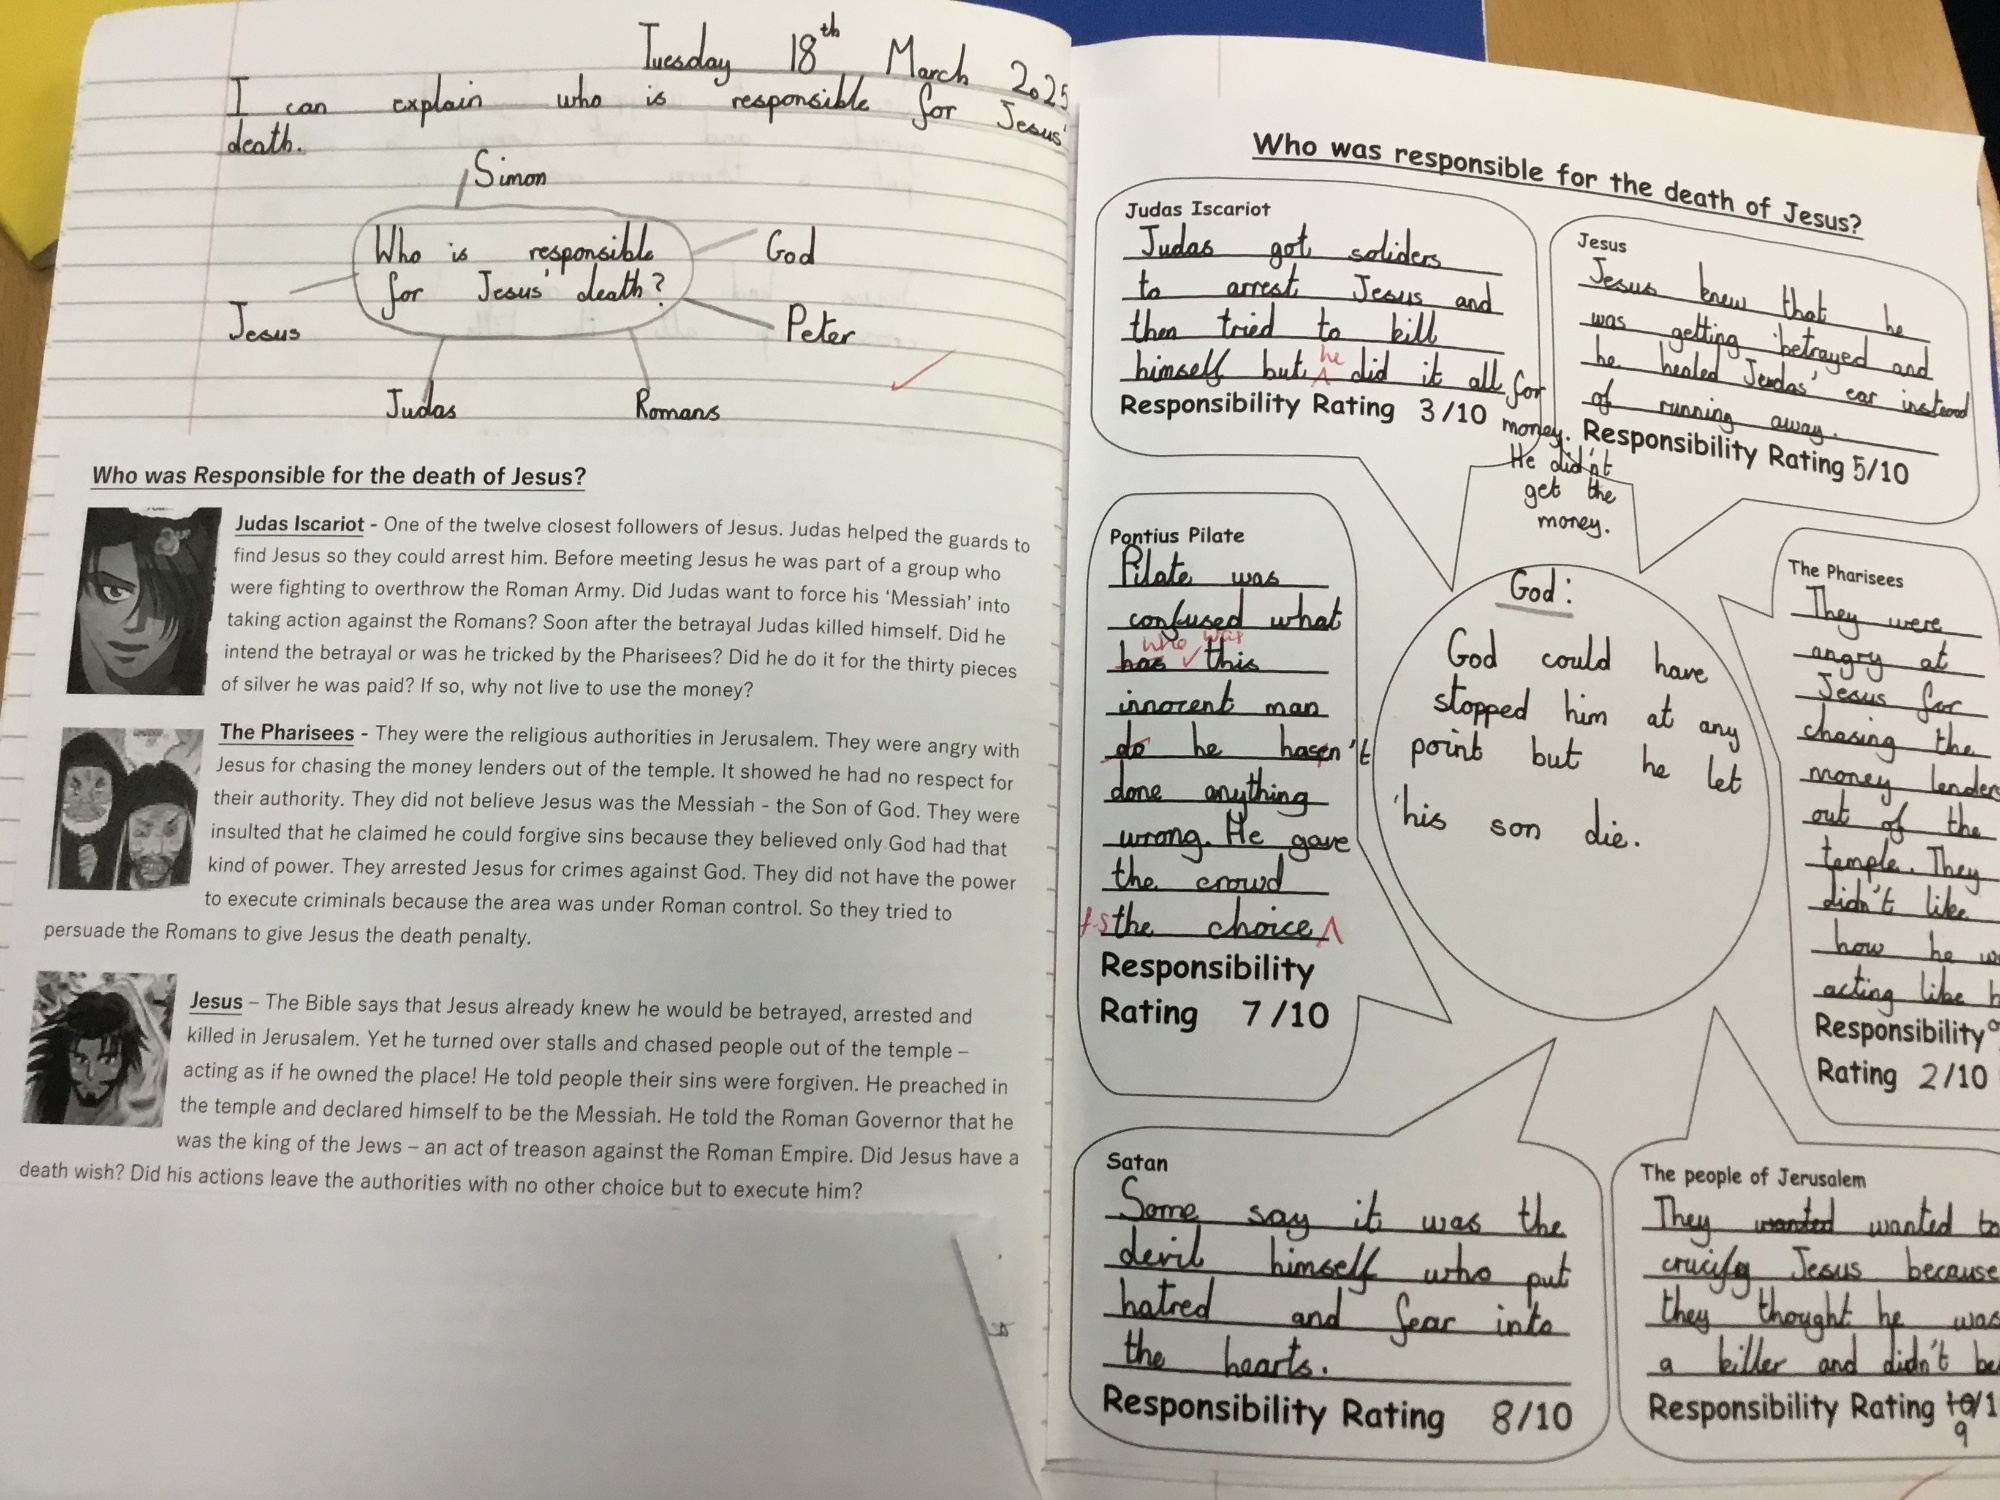 Tuesday 18th March 2025
I can explain who is responsible for Jesus'
death.
Simon
Who is responsible
for Jesus' death?
God
Jesus
Peter
Judas
Romans
Who was Responsible for the death of Jesus?
Judas Iscariot - One of the twelve closest followers of Jesus. Judas helped the guards to
find Jesus so they could arrest him. Before meeting Jesus he was part of a group who
were fighting to overthrow the Roman Army. Did Judas want to force his ‘Messiah’ into
taking action against the Romans? Soon after the betrayal Judas killed himself. Did he
intend the betrayal or was he tricked by the Pharisees? Did he do it for the thirty pieces
of silver he was paid? If so, why not live to use the money?
The Pharisees - They were the religious authorities in Jerusalem. They were angry with
Jesus for chasing the money lenders out of the temple. It showed he had no respect for
their authority. They did not believe Jesus was the Messiah - the Son of God. They were
insulted that he claimed he could forgive sins because they believed only God had that
kind of power. They arrested Jesus for crimes against God. They did not have the power
to execute criminals because the area was under Roman control. So they tried to
persuade the Romans to give Jesus the death penalty.
Jesus – The Bible says that Jesus already knew he would be betrayed, arrested and
killed in Jerusalem. Yet he turned over stalls and chased people out of the temple –
acting as if he owned the place! He told people their sins were forgiven. He preached in
the temple and declared himself to be the Messiah. He told the Roman Governor that he
was the king of the Jews – an act of treason against the Roman Empire. Did Jesus have a
death wish? Did his actions leave the authorities with no other choice but to execute him?
Who was responsible for the death of Jesus?
Judas Iscariot
Judas got soliders
to arrest Jesus and
then tried to kill
himself but he did it all for
money.
He didn't
get the
money.
Responsibility Rating 3/10
Jesus
Jesus knew that he
was getting betrayed and
he healed Judas' ear instead
of running away.
Responsibility Rating 5/10
Pontius Pilate
Pilate was
confused what
who was
has this
innocent man
do he hasen't
done anything
wrong. He gave
the crowd
the choice
Responsibility
Rating 7/10
God:
God could have
stopped him at any
point but he let
his son die.
The Pharisees
They were
angry at
Jesus for
chasing the
money lenders
out of the
temple. They
didn't like
how he
acting like
Responsibility
Rating 2/10
Satan
Some say it was the
devil himself who put
hatred and fear into
the hearts.
Responsibility Rating 8/10
The people of Jerusalem
They wanted wanted to
crucify Jesus because
they thought he was
a killer and didn't
Responsibility Rating 10/1
9